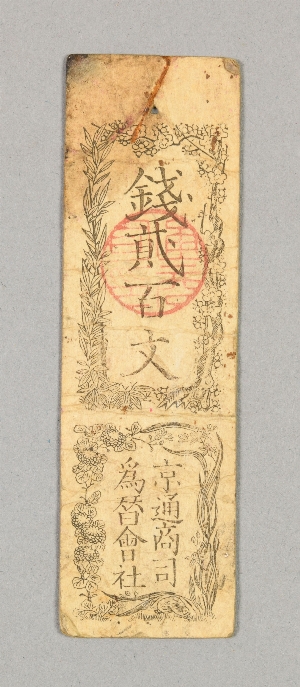 錢貳百文
京通商司
為替會社